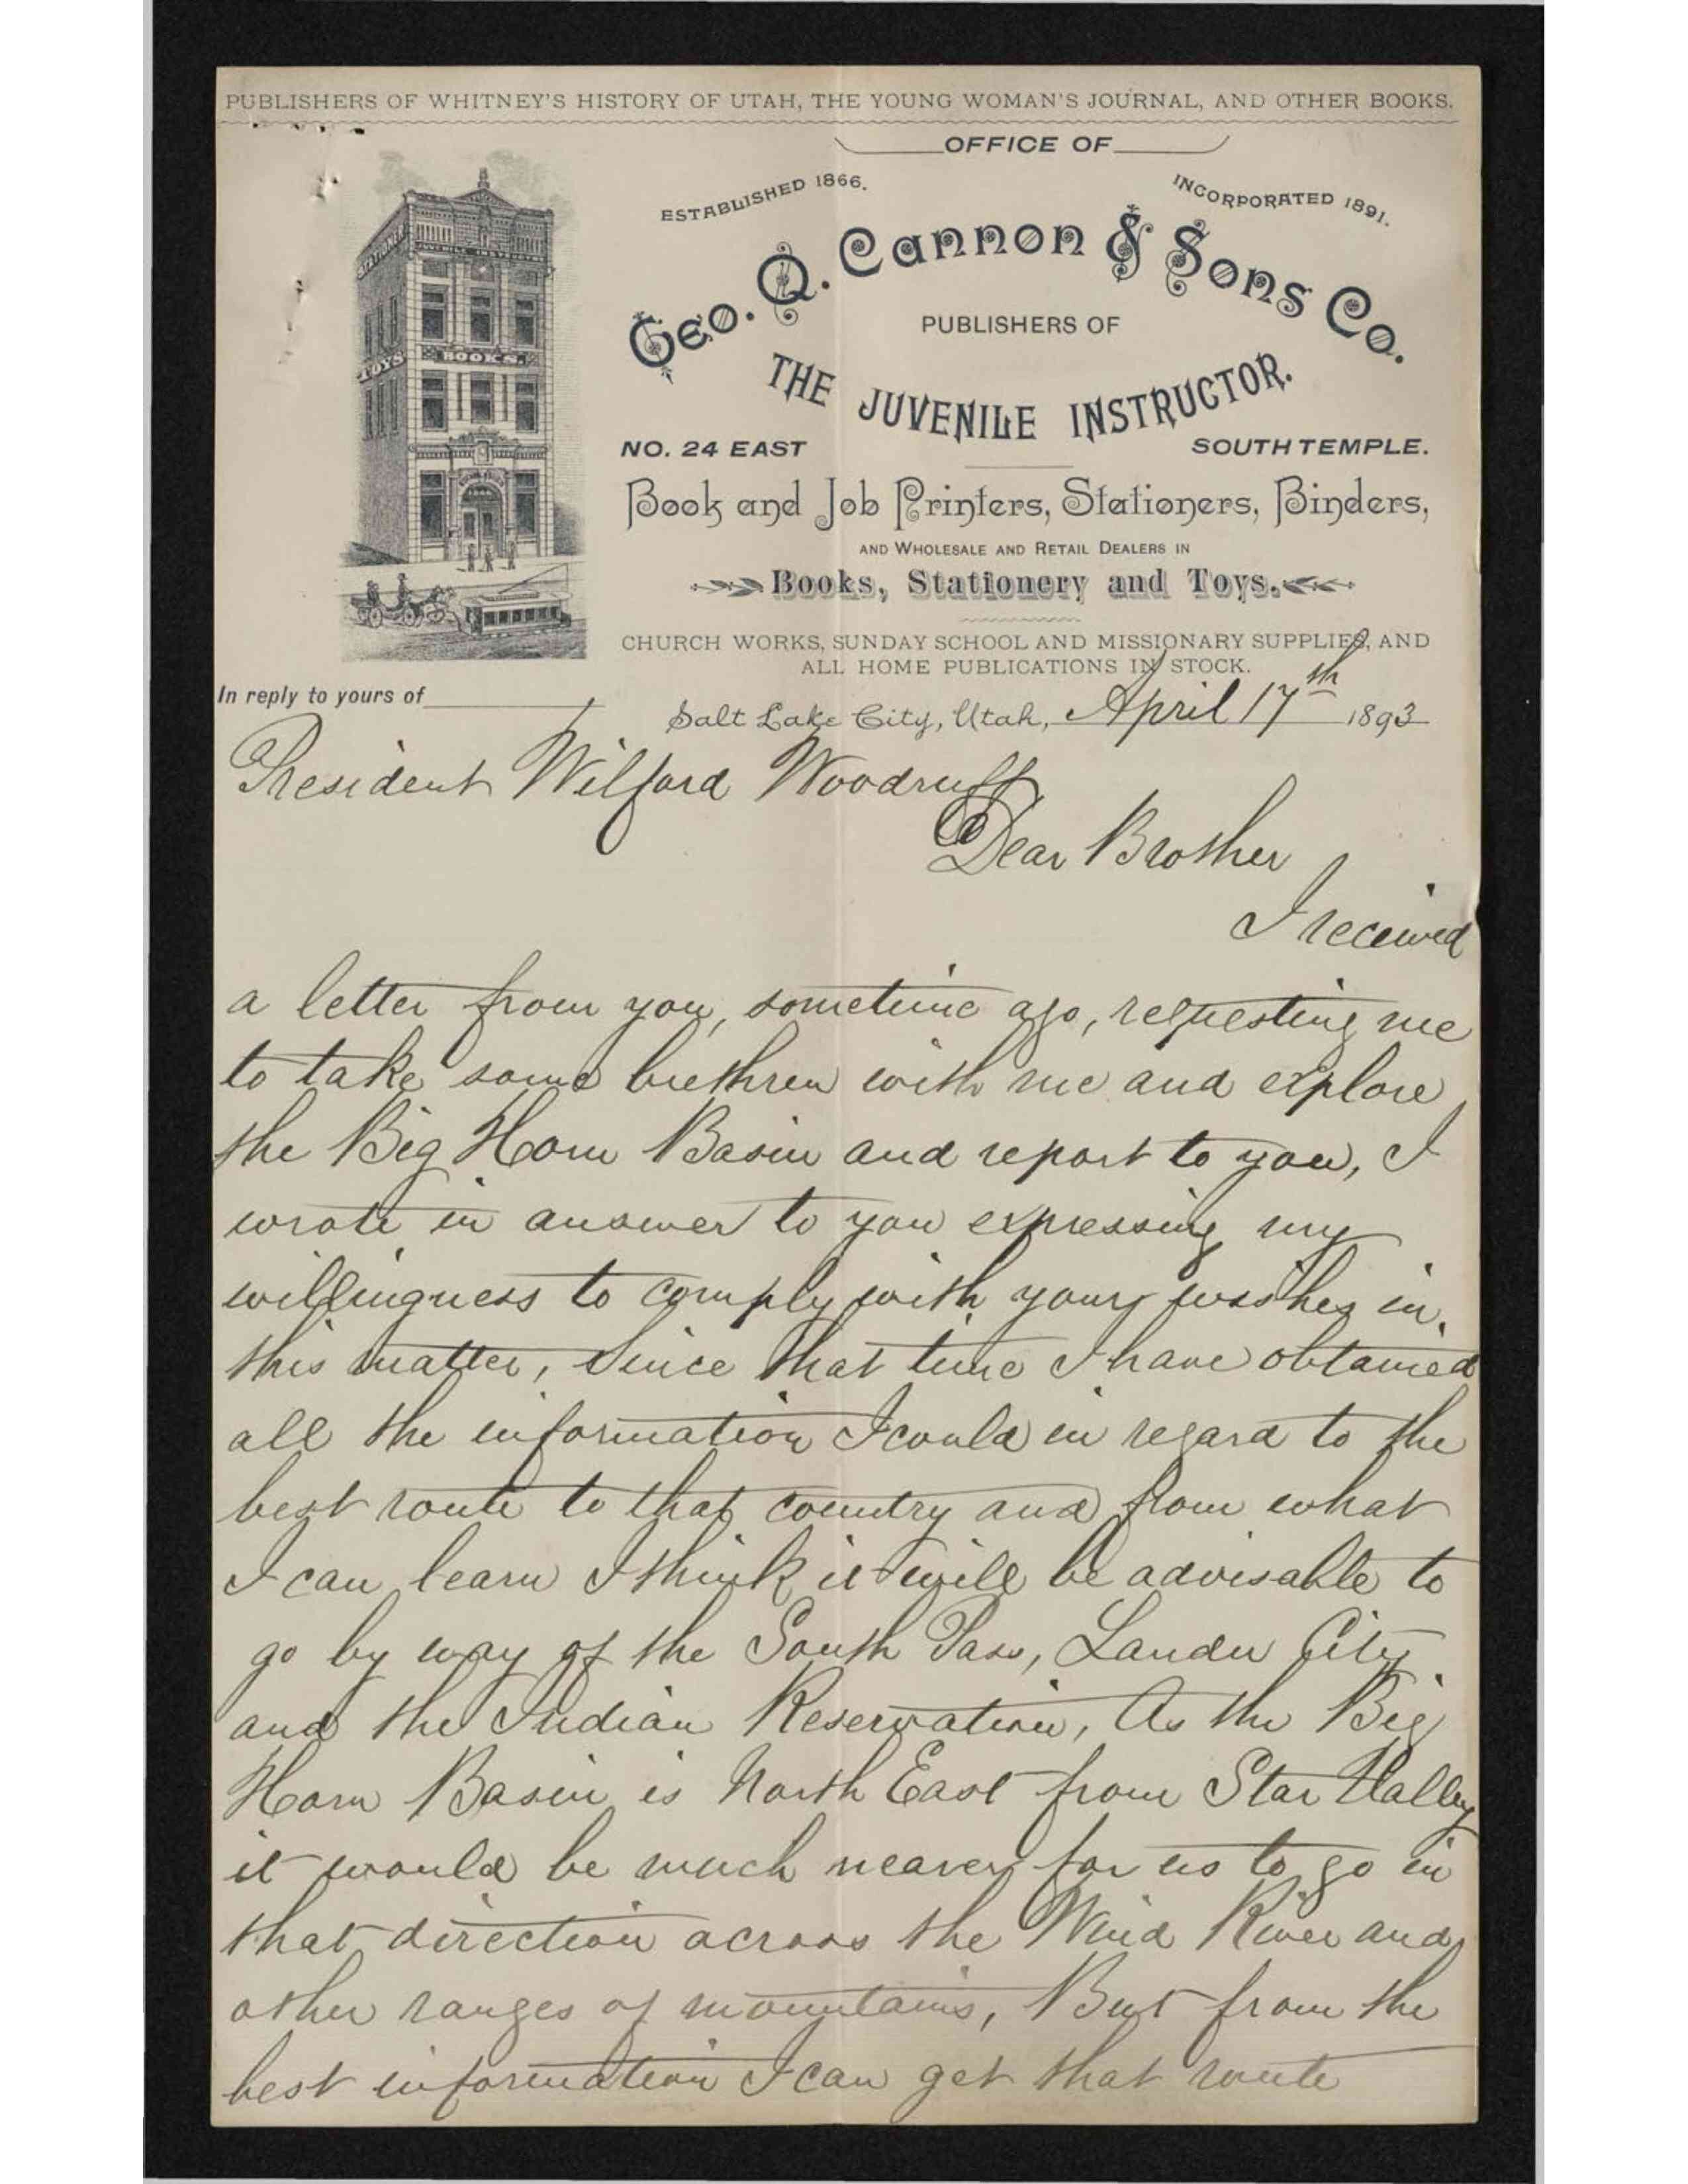 PUBLISHERS OF WHITNEY'S HISTORY OF UTAH, THE YOUNG WOMAN'S JOURNAL, AND OTHER BOOKS.
OFFICE OF
ESTABLISHED 1866.
INCORPORATED 1891.
Geo. Q. Cannon & Sons Co.
PUBLISHERS OF
THE JUVENILE INSTRUCTOR.
NO. 24 EAST SOUTH TEMPLE.
Book and Job Printers, Stationers, Binders,
AND WHOLESALE AND RETAIL DEALERS IN
Books, Stationery and Toys.
CHURCH WORKS, SUNDAY SCHOOL AND MISSIONARY SUPPLIES, AND
ALL HOME PUBLICATIONS IN STOCK.
STATIONER
JUVENILE INSTRUCTOR
TOYS
BOOKS.
In reply to yours of
Salt Lake City, Utah, April 17th 1893
President Wilford Woodruff
Dear Brother
I received
a letter from you, sometime ago, requesting me
to take some brethren with me and explore
the Big Horn Basin and report to you, I
wrote in answer to you expressing my
willingness to comply with your wishes in
this matter, Since that time I have obtained
all the information I could in regard to the
best route to that country and from what
I can learn I think it will be advisable to
go by way of the South Pass, Lander City
and the Indian Reservation, As the Big
Horn Basin is North East from Star Valley
it would be much nearer for us to go in
that direction across the Wind River and
other ranges of mountains, But from the
best information I can get that route